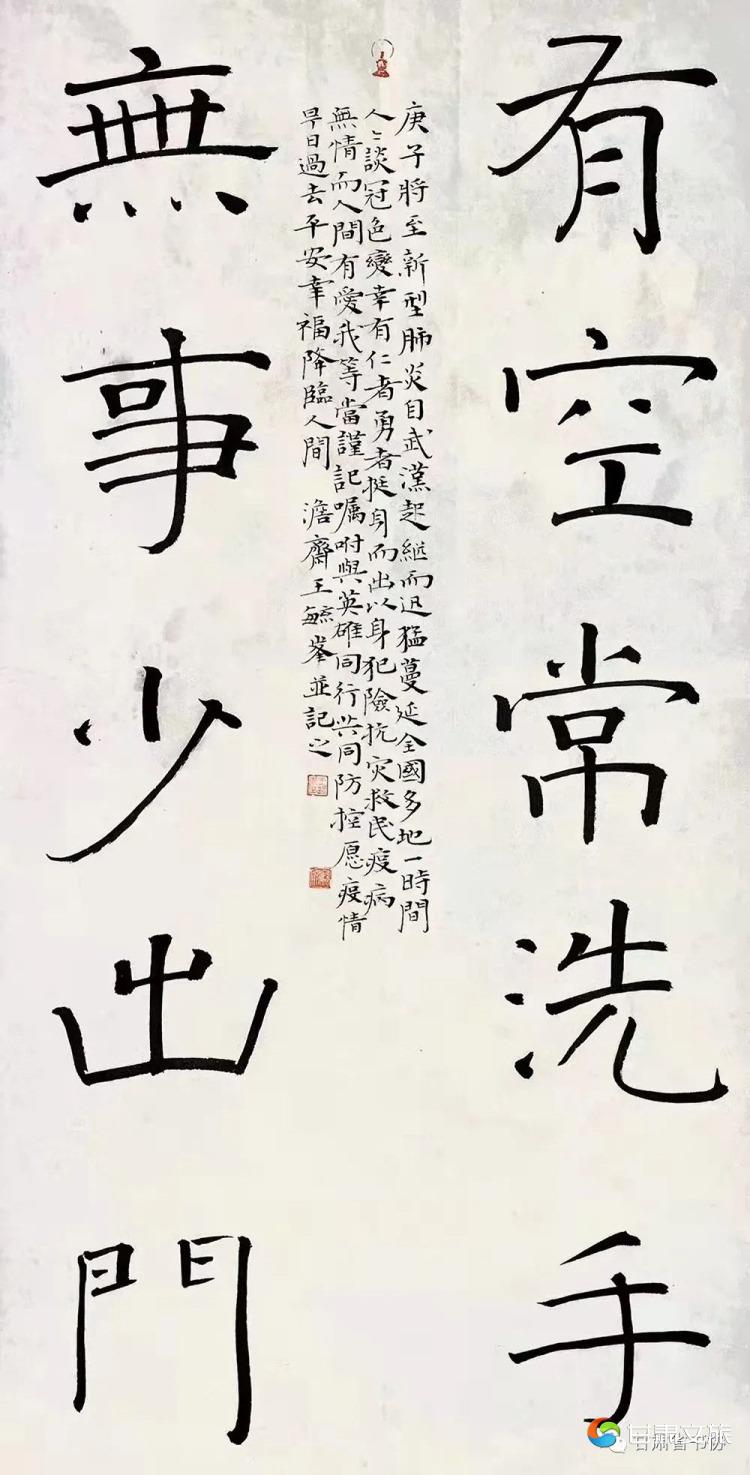 有空常洗手
庚子將至新型肺炎自武漢起繼而迅猛蔓延全國多地一時間
人〻談冠色變幸有仁者勇者挺身而出以身犯險抗灾救民疫病
無情而人間有愛我等當謹記嘱咐與英雄同行共同防控愿疫情
早日過去平安幸福降臨人間 澹齋王毓峯並記之
無事少出門
甘肃文旅
甘肃省书协